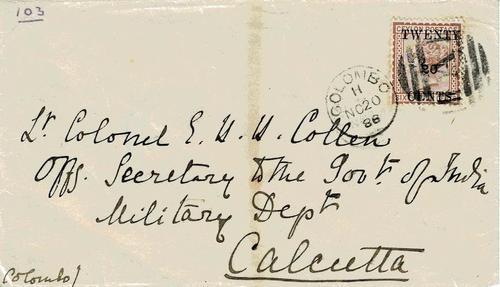 103
CEYLON POSTAGE
TWENTY
20
CENTS
SIX
COLOMBO
H
NO 20
86
Lt Colonel E. H. H. Collen
Offg. Secretary to the Govt. of India
Military Dept
Calcutta
Colombo